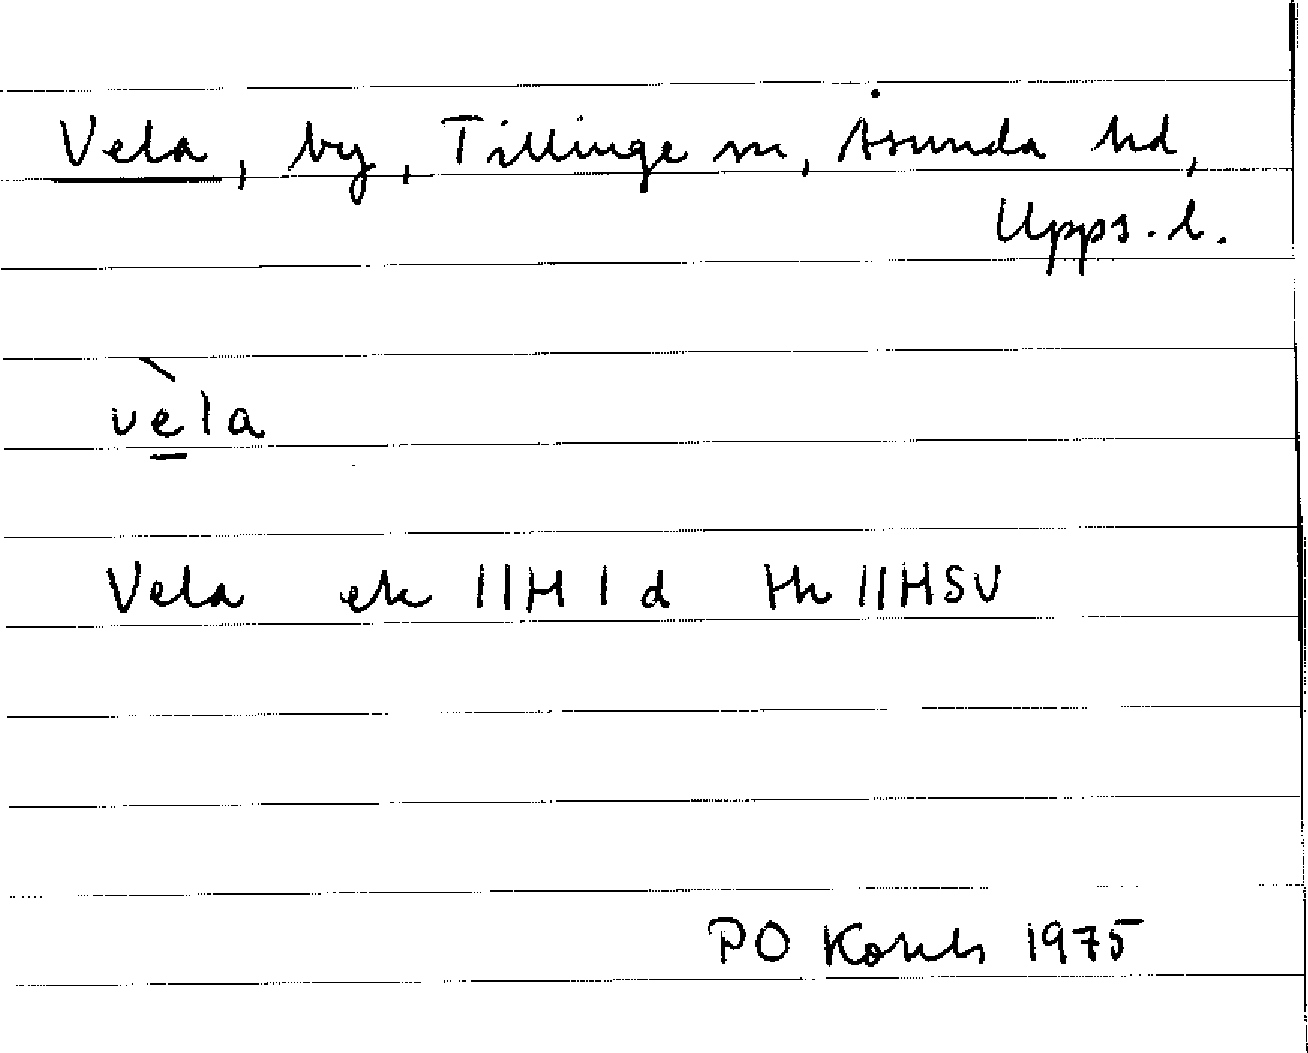 Vela, by, Tillinge sn, Åsunda hd,
Upps. l.
vèla
Vela ek 11H 1 d tk 11HSV
PO 1975